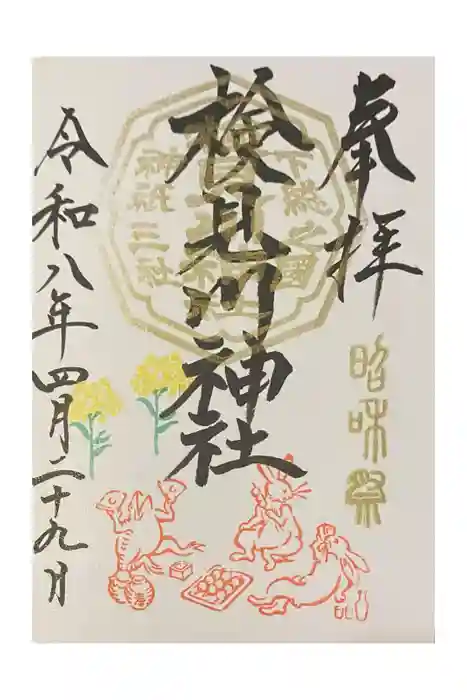 奉拝
昭和祭
検見川神社
下総之國
神祇三社
令和八年四月二十九日